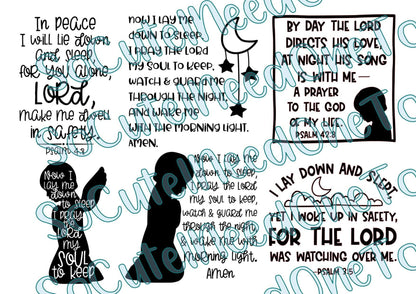 In peace
I will lie down
and sleep
for you alone,
Lord,
make me dwell
in safety.
PSALM 4:8
NOW I LAY ME
DOWN TO SLEEP.
I PRAY THE LORD
MY SOUL TO KEEP,
WATCH & GUARD ME
THROUGH THE NIGHT,
AND WAKE ME
WITH THE MORNING LIGHT.
AMEN.
BY DAY THE LORD
DIRECTS HIS LOVE,
AT NIGHT HIS SONG
IS WITH ME—
A PRAYER
TO THE GOD
OF MY LIFE.
PSALM 42:8
NOW I
lay me
DOWN
to sleep
I PRAY
the
LORD
my
SOUL
to keep
Now I lay me
down to sleep,
I pray the Lord
my soul to keep,
watch & guard me
through the night,
& wake me with
Morning light.
Amen
I LAY DOWN AND SLEPT
YET I WOKE UP IN SAFETY,
FOR THE LORD
WAS WATCHING OVER ME.
-PSALM 3:5
SoCuteINeedOneToo